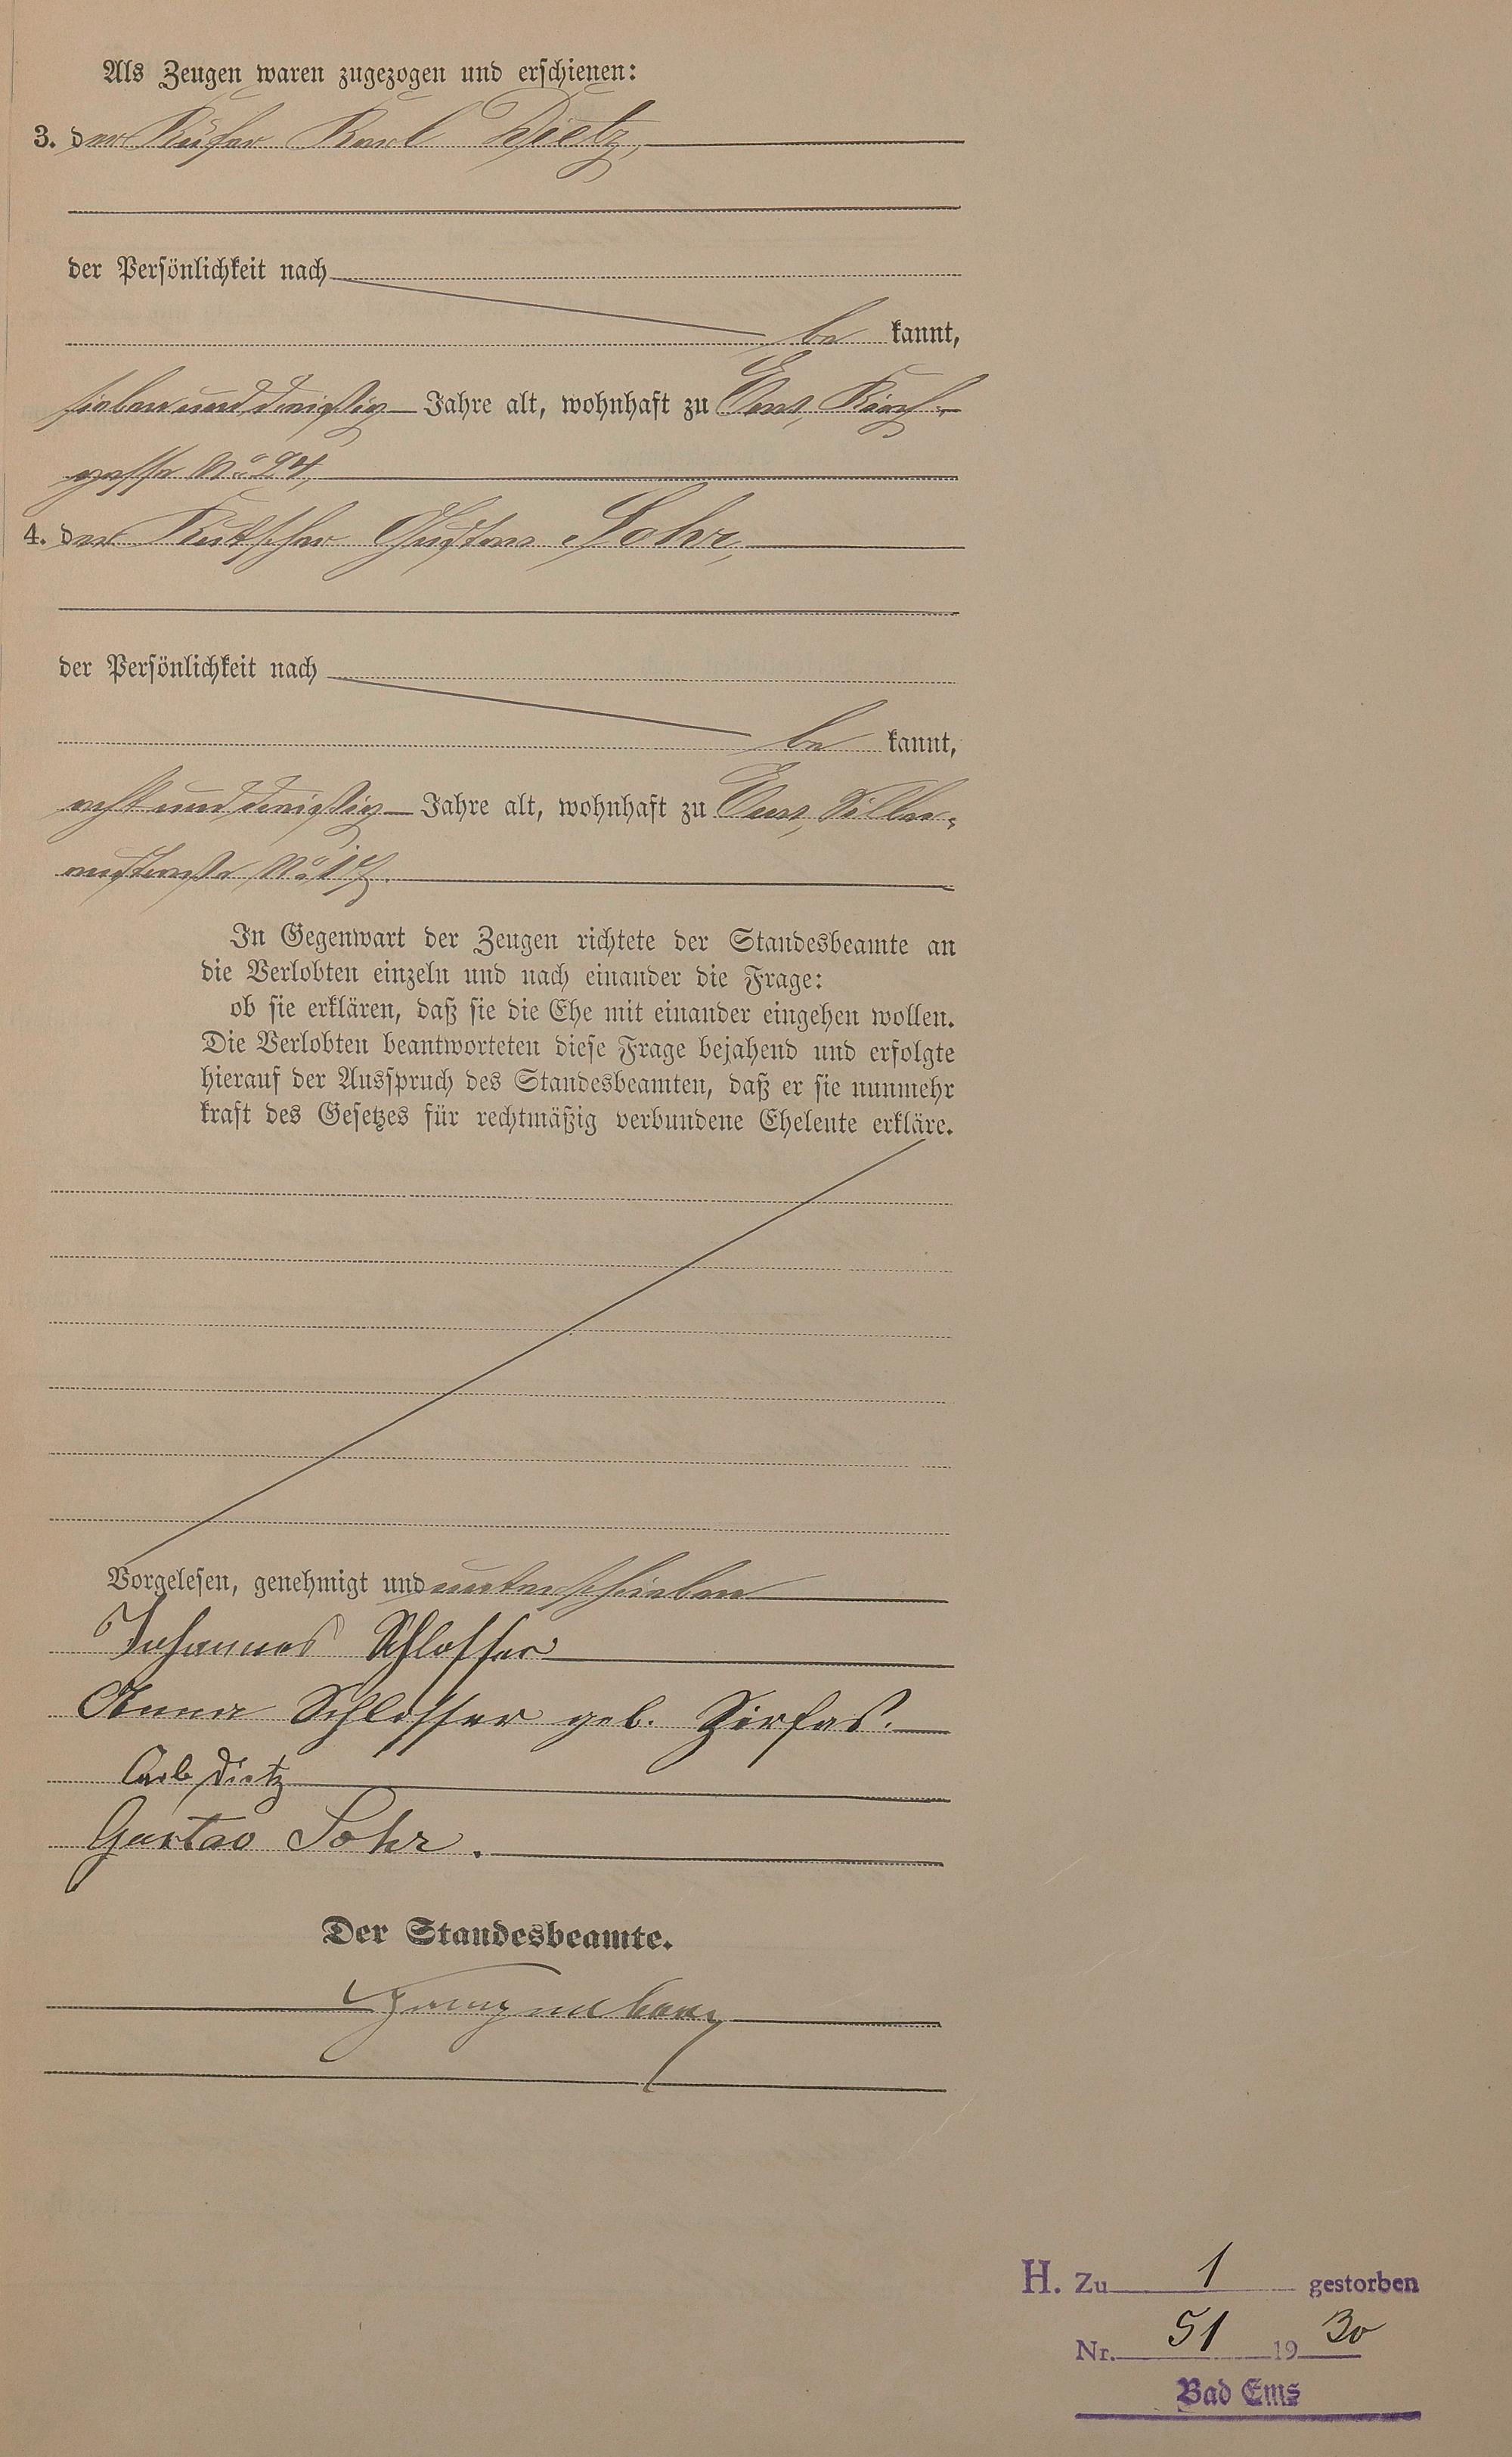 Als Zeugen waren zugezogen und erschienen:
3. der Küfer Karl Dietz,
der Persönlichkeit nach
be kannt,
sieben und dreißig Jahre alt, wohnhaft zu Ems, Kirch-
gasse No 24,
4. der Kutscher Gustav Sohr,
der Persönlichkeit nach
be kannt,
acht und dreißig Jahre alt, wohnhaft zu Ems, Silber-
austraße No 17.
In Gegenwart der Zeugen richtete der Standesbeamte an
die Verlobten einzeln und nach einander die Frage:
ob sie erklären, daß sie die Ehe mit einander eingehen wollen.
Die Verlobten beantworteten diese Frage bejahend und erfolgte
hierauf der Ausspruch des Standesbeamten, daß er sie nunmehr
kraft des Gesetzes für rechtmäßig verbundene Eheleute erkläre.
Vorgelesen, genehmigt und unterschrieben
Johannes Schlosser
Anna Schlosser geb. Zirfas.
Carl Dietz
Gustav Sohr.
Der Standesbeamte.
H. Zu 1 gestorben
Nr. 51 1930
Bad Ems